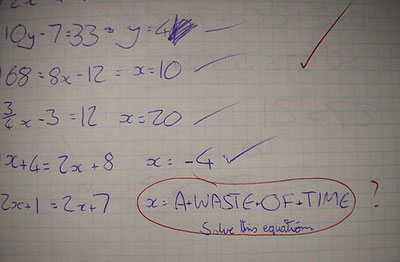 10y-7=33 ⇒ y=4
168=8x-12 = x=10
3/4x-3=12 x=20
x+4=2x+8 x=-4 ✓
2x+1=2x+7 x=A+WASTE+OF+TIME ?
Solve this equation